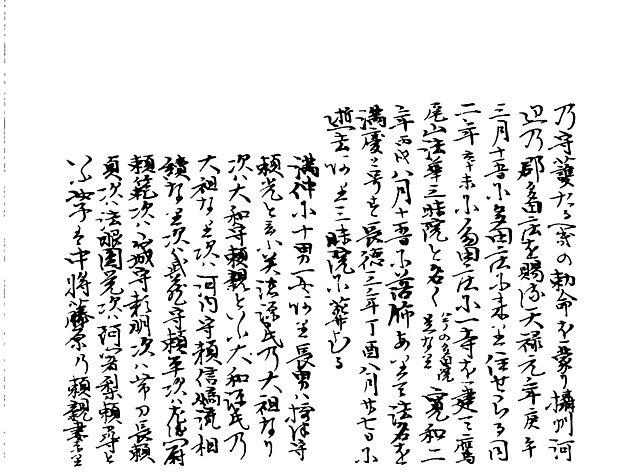 乃守護たるへきの勅命を蒙り攝州河
辺乃郡多田庄を賜ふ天禄元年庚午
三月十五日小多田庄小来りて住せらる同
二年辛未小多田庄小一寺を建て鷹
尾山法華三昧院と名く今の多田院是なり寛和二
年丙戌八月十五日小落飾ありて法名を
満慶と号す長徳三年丁酉八月廿七日小
逝去ありて三昧院小葬れる
満仲小十男一女あり長男ハ摂津守
頼光といふ美濃源氏乃大祖なり
次ハ大和守頼親といふ大和源氏乃
大祖なり次ハ河内守頼信嫡流相
續なり次ハ武蔵守頼平次ハ左衛門尉
頼範次ハ宮城守頼明次ハ帯刀長頼
貞次ハ法眼圓覚次ハ阿闍梨頼尋と
いふ女子は中将藤原乃頼親妻なり